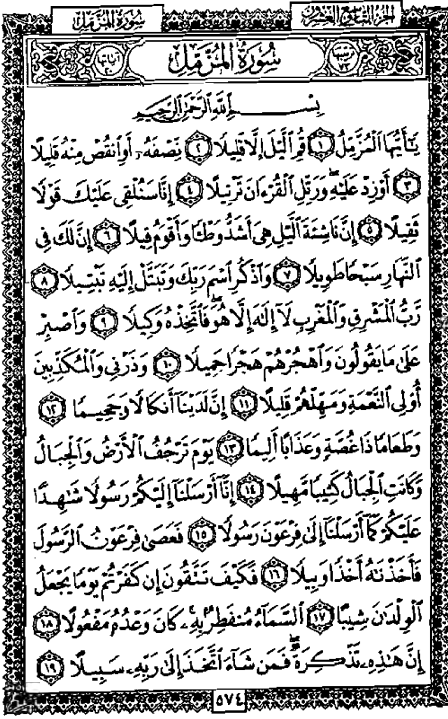 سُورَةُ المُزَّمِّل الجُزْءُ التَّاسِعُ وَالعِشْرُونَ
سُورَةُ المُزَّمِّل
بِسْمِ اللَّهِ الرَّحْمَٰنِ الرَّحِيمِ
يَٰٓأَيُّهَا ٱلْمُزَّمِّلُ ١ قُمِ ٱلَّيْلَ إِلَّا قَلِيلًا ٢ نِّصْفَهُۥٓ أَوِ ٱنقُصْ مِنْهُ قَلِيلًا
٣ أَوْ زِدْ عَلَيْهِ وَرَتِّلِ ٱلْقُرْءَانَ تَرْتِيلًا ٤ إِنَّا سَنُلْقِى عَلَيْكَ قَوْلًا
ثَقِيلًا ٥ إِنَّ نَاشِئَةَ ٱلَّيْلِ هِىَ أَشَدُّ وَطْـًٔا وَأَقْوَمُ قِيلًا ٦ إِنَّ لَكَ فِى
ٱلنَّهَارِ سَبْحًا طَوِيلًا ٧ وَٱذْكُرِ ٱسْمَ رَبِّكَ وَتَبَتَّلْ إِلَيْهِ تَبْتِيلًا ٨
رَّبُّ ٱلْمَشْرِقِ وَٱلْمَغْرِبِ لَآ إِلَٰهَ إِلَّا هُوَ فَٱتَّخِذْهُ وَكِيلًا ٩ وَٱصْبِرْ
عَلَىٰ مَا يَقُولُونَ وَٱهْجُرْهُمْ هَجْرًا جَمِيلًا ١٠ وَذَرْنِى وَٱلْمُكَذِّبِينَ
أُو۟لِى ٱلنَّعْمَةِ وَمَهِّلْهُمْ قَلِيلًا ١١ إِنَّ لَدَيْنَآ أَنكَالًا وَجَحِيمًا ١٢
وَطَعَامًا ذَا غُصَّةٍ وَعَذَابًا أَلِيمًا ١٣ يَوْمَ تَرْجُفُ ٱلْأَرْضُ وَٱلْجِبَالُ
وَكَانَتِ ٱلْجِبَالُ كَثِيبًا مَّهِيلًا ١٤ إِنَّآ أَرْسَلْنَآ إِلَيْكُمْ رَسُولًا شَٰهِدًا
عَلَيْكُمْ كَمَآ أَرْسَلْنَآ إِلَىٰ فِرْعَوْنَ رَسُولًا ١٥ فَعَصَىٰ فِرْعَوْنُ ٱلرَّسُولَ
فَأَخَذْنَٰهُ أَخْذًا وَبِيلًا ١٦ فَكَيْفَ تَتَّقُونَ إِن كَفَرْتُمْ يَوْمًا يَجْعَلُ
ٱلْوِلْدَٰنَ شِيبًا ١٧ ٱلسَّمَآءُ مُنفَطِرٌۢ بِهِۦ كَانَ وَعْدُهُۥ مَفْعُولًا ١٨
إِنَّ هَٰذِهِۦ تَذْكِرَةٌ فَمَن شَآءَ ٱتَّخَذَ إِلَىٰ رَبِّهِۦ سَبِيلًا ١٩
٥٧٤